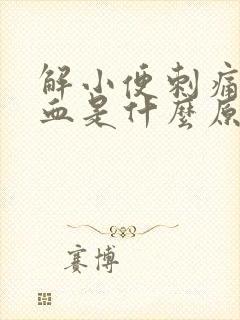 解小便刺痛
血是什麼原
賽博